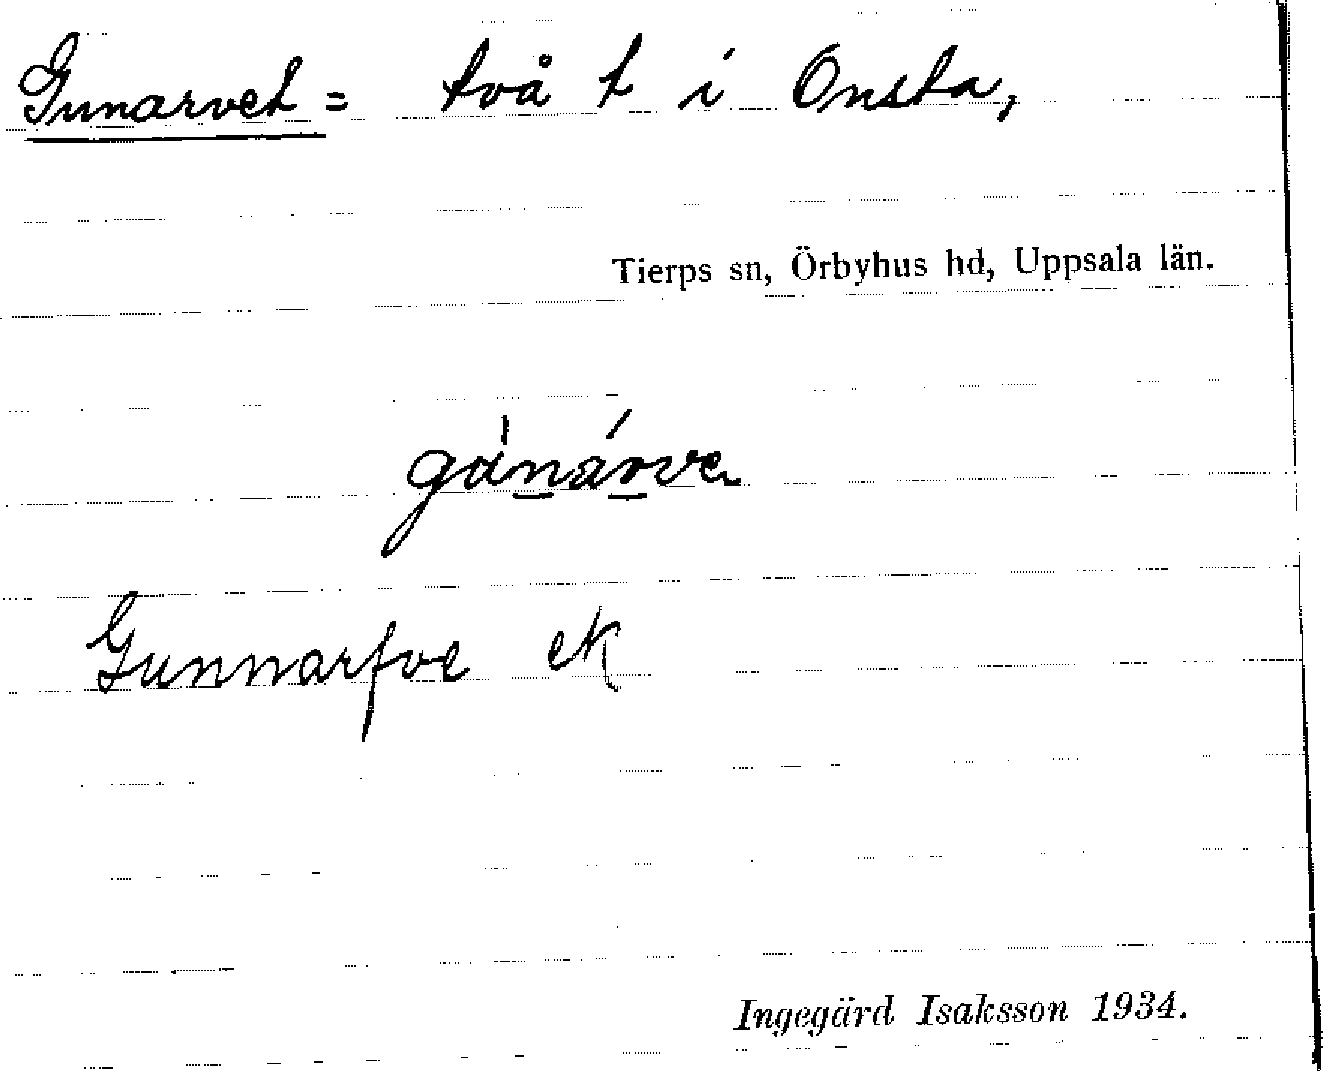 Gunarvet = två t i Onsta,
Tierps sn, Örbyhus hd, Uppsala län.
gánárve
Gunnarfve ek
Ingegärd Isaksson 1934.